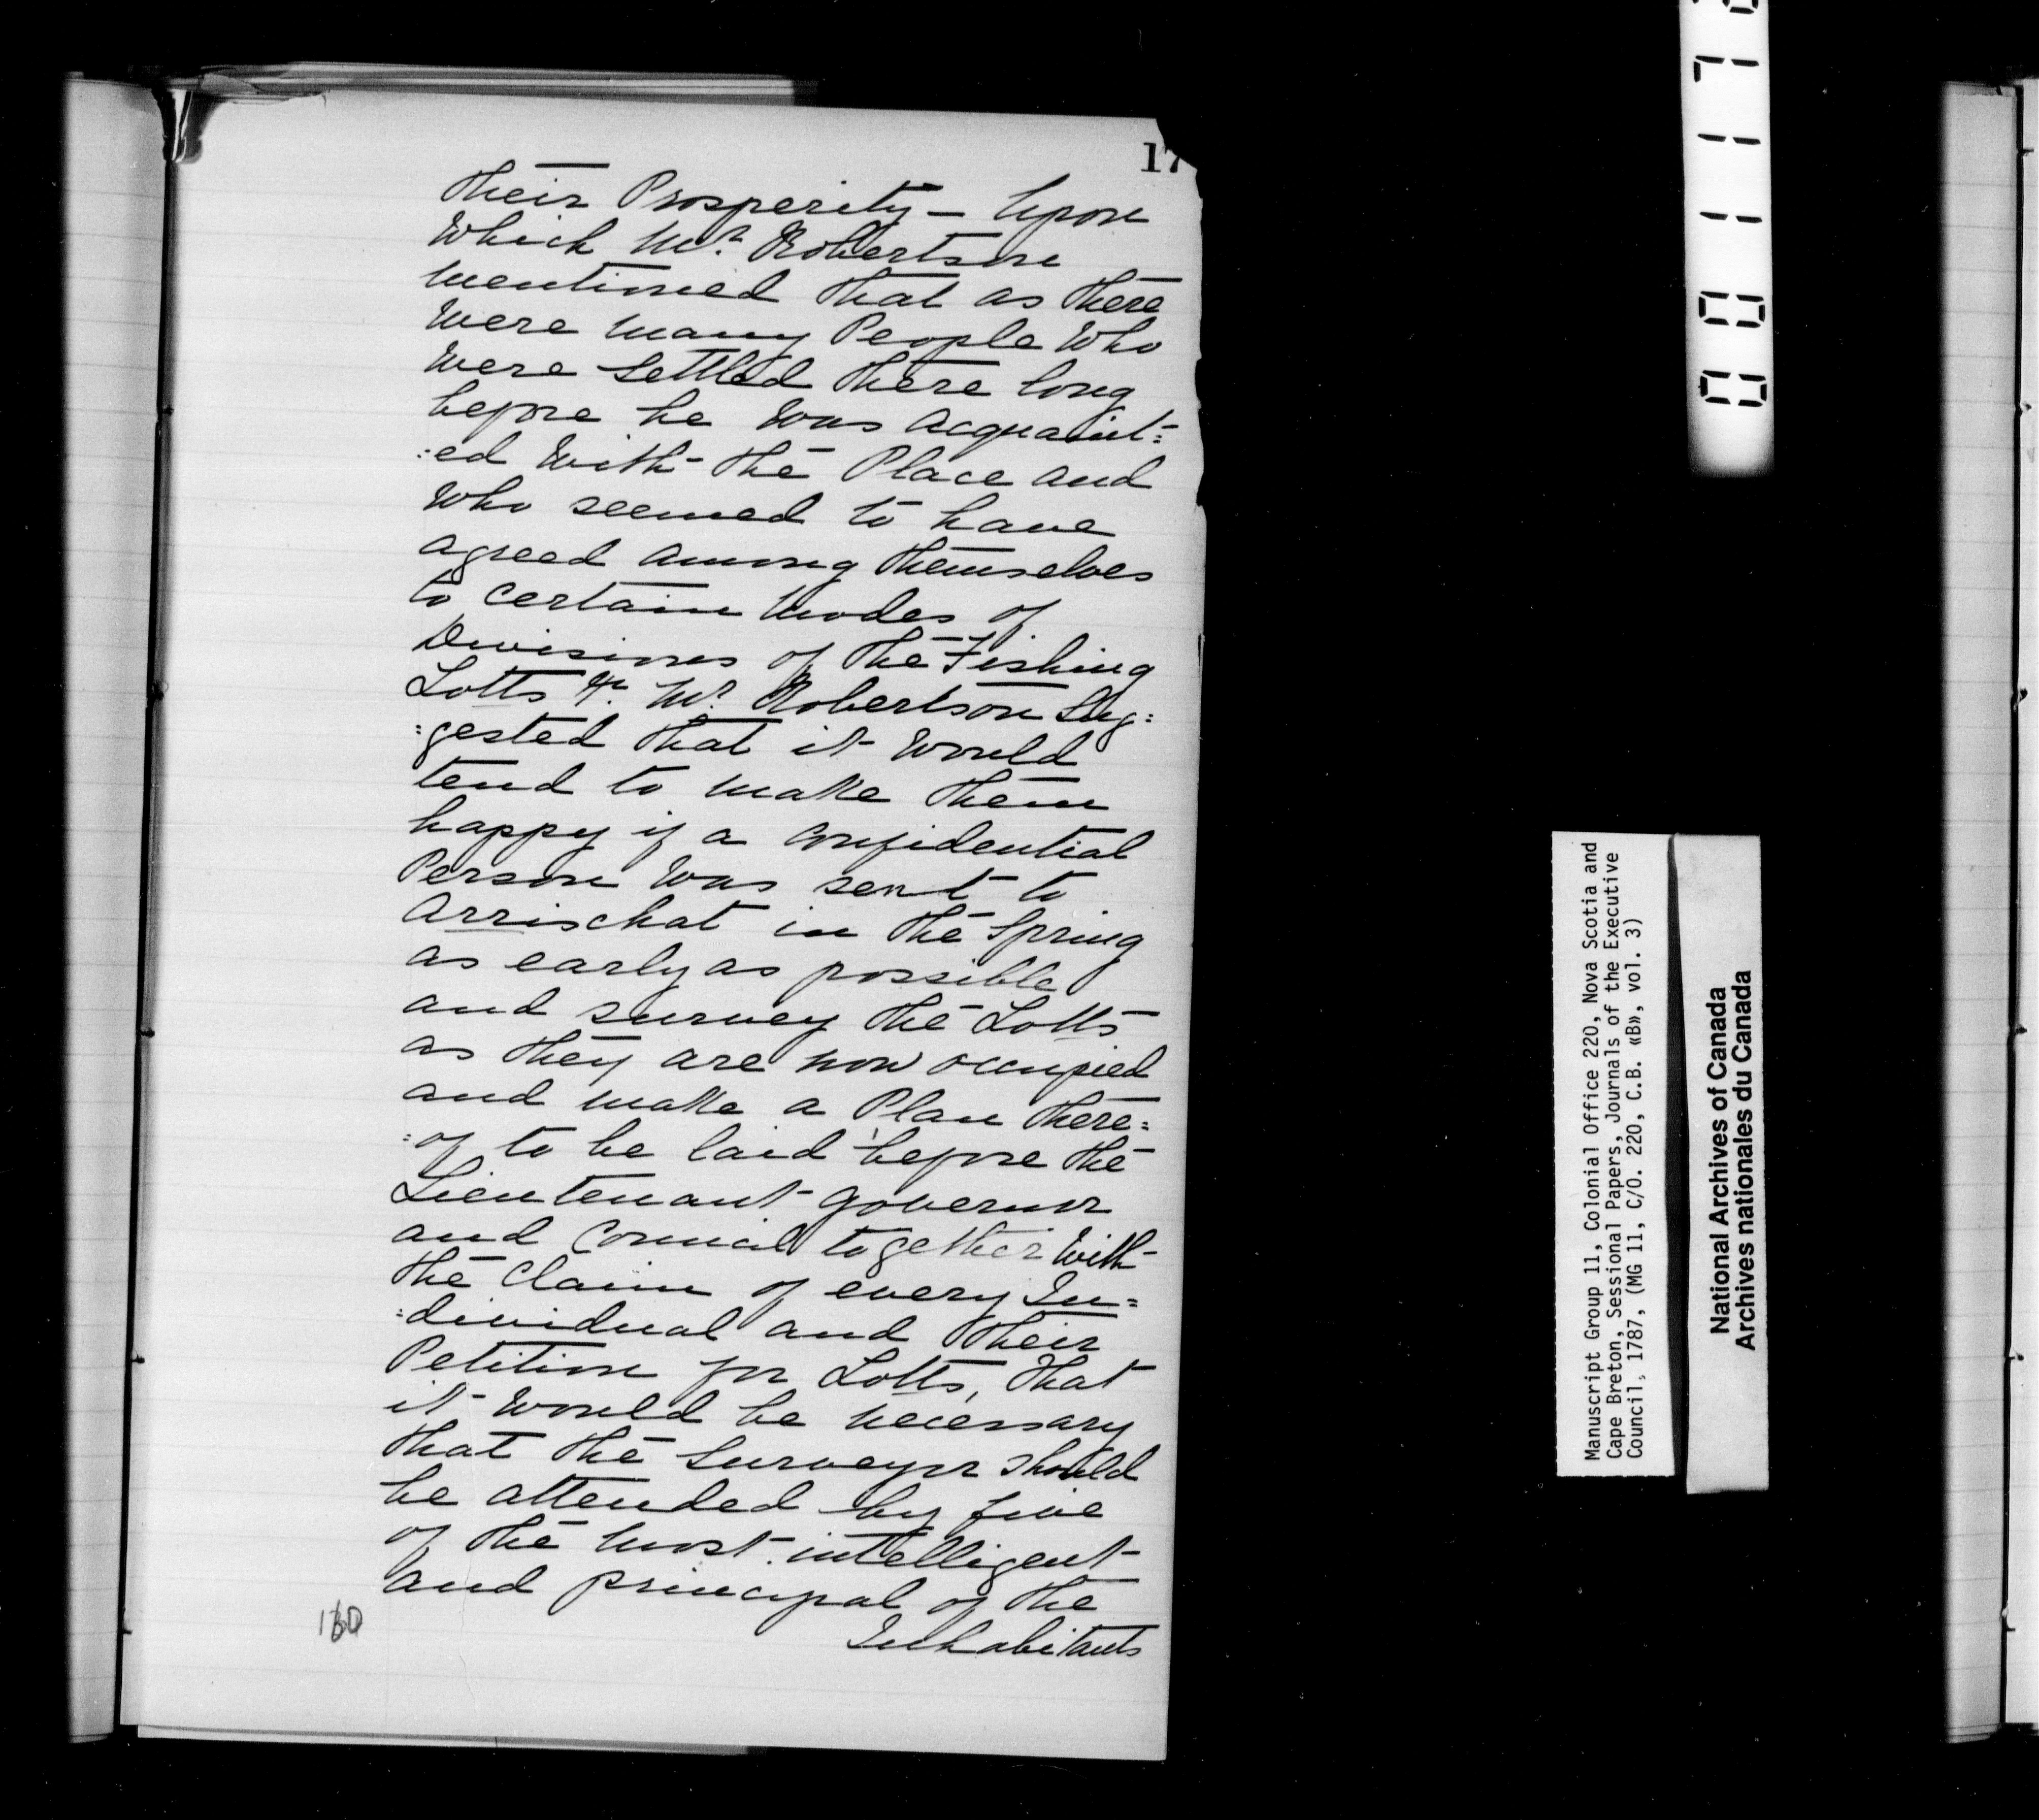 17
their Prosperity – Upon
which Mr. Robertson
mentioned that as there
were many People who
were settled there long
before he was acquaint=
:ed with the Place and
who seemed to have
agreed among themselves
to certain modes of
Divisions of the Fishing
Lotts &c. Mr. Robertson sug=
:gested that it would
tend to make them
happy if a confidential
Person was sent to
Arrischat in the Spring
as early as possible
and survey the Lotts
as they are now occupied
and make a Plan there=
=of to be laid before the
Lieutenant governor
and Council together with
the claim of every In=
:dividual and their
Petition for Lotts, that
it would be necessary
that the surveyor should
be attended by five
of the most intelligent
and principal of the
Inhabitants
Manuscript Group 11, Colonial Office 220, Nova Scotia and
Cape Breton, Sessional Papers, Journals of the Executive
Council, 1787, (MG 11, C/O. 220, C.B. «B», vol. 3)
National Archives of Canada
Archives nationales du Canada